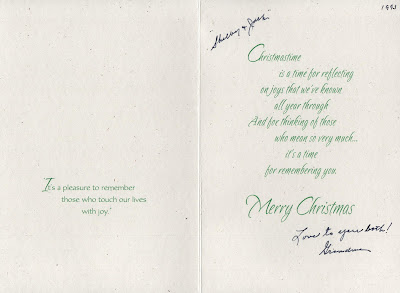 It's a pleasure to remember
those who touch our lives
with joy.
1993
"Shelley & Josh"
Christmastime
is a time for reflecting
on joys that we've known
all year through
And for thinking of those
who mean so very much...
it's a time
for remembering you.
Merry Christmas
Love to you both!
Grandma